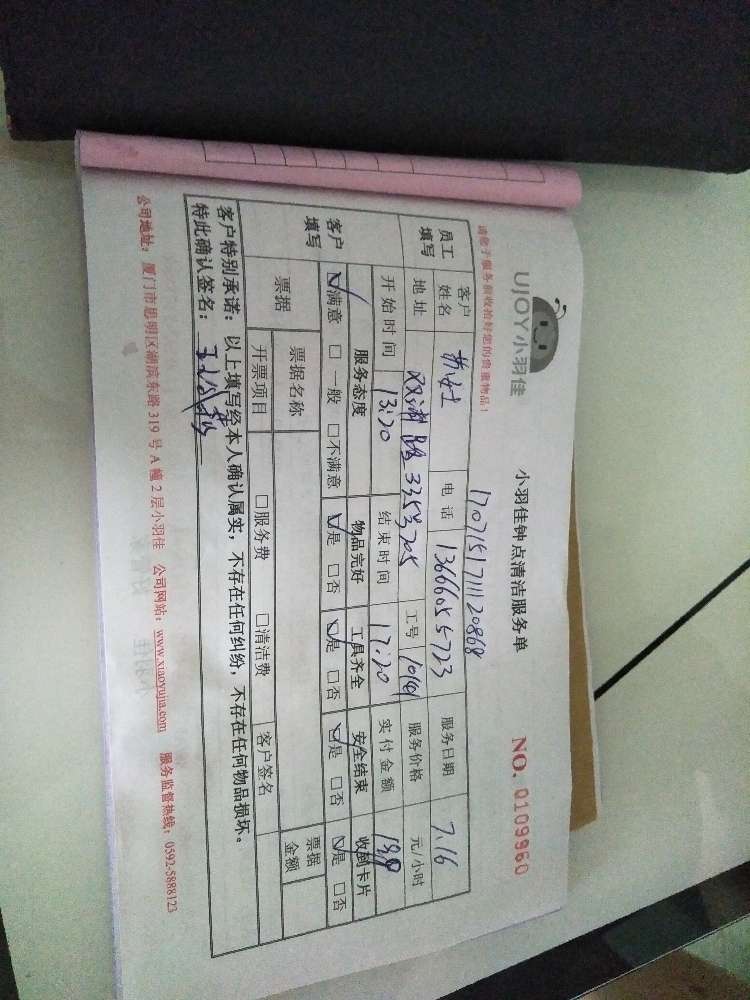 UJOY小羽佳
小羽佳钟点清洁服务单
NO. 0109960
请您于服务前收拾好您的贵重物品！
1707151711120868
员工填写 客户姓名 女士 电话 13666055723 服务日期 7.16
地址 工号 服务价格 元/小时
开始时间 13:20 结束时间 17:20 实付金额
客户填写 服务态度 物品完好 工具齐全 安全结束 收到卡片
☑满意 □一般 □不满意 ☑是 □否 ☑是 □否 ☑是 □否 ☑是 □否
票据 票据名称 票据金额
开票项目 □服务费 □清洁费 客户签名
客户特别承诺：以上填写经本人确认属实，不存在任何纠纷，不存在任何物品损坏。
特此确认签名：
公司地址：厦门市思明区湖滨东路319号A幢2层小羽佳 公司网站：www.xiaoyujia.com 服务监督热线：0592-5888123